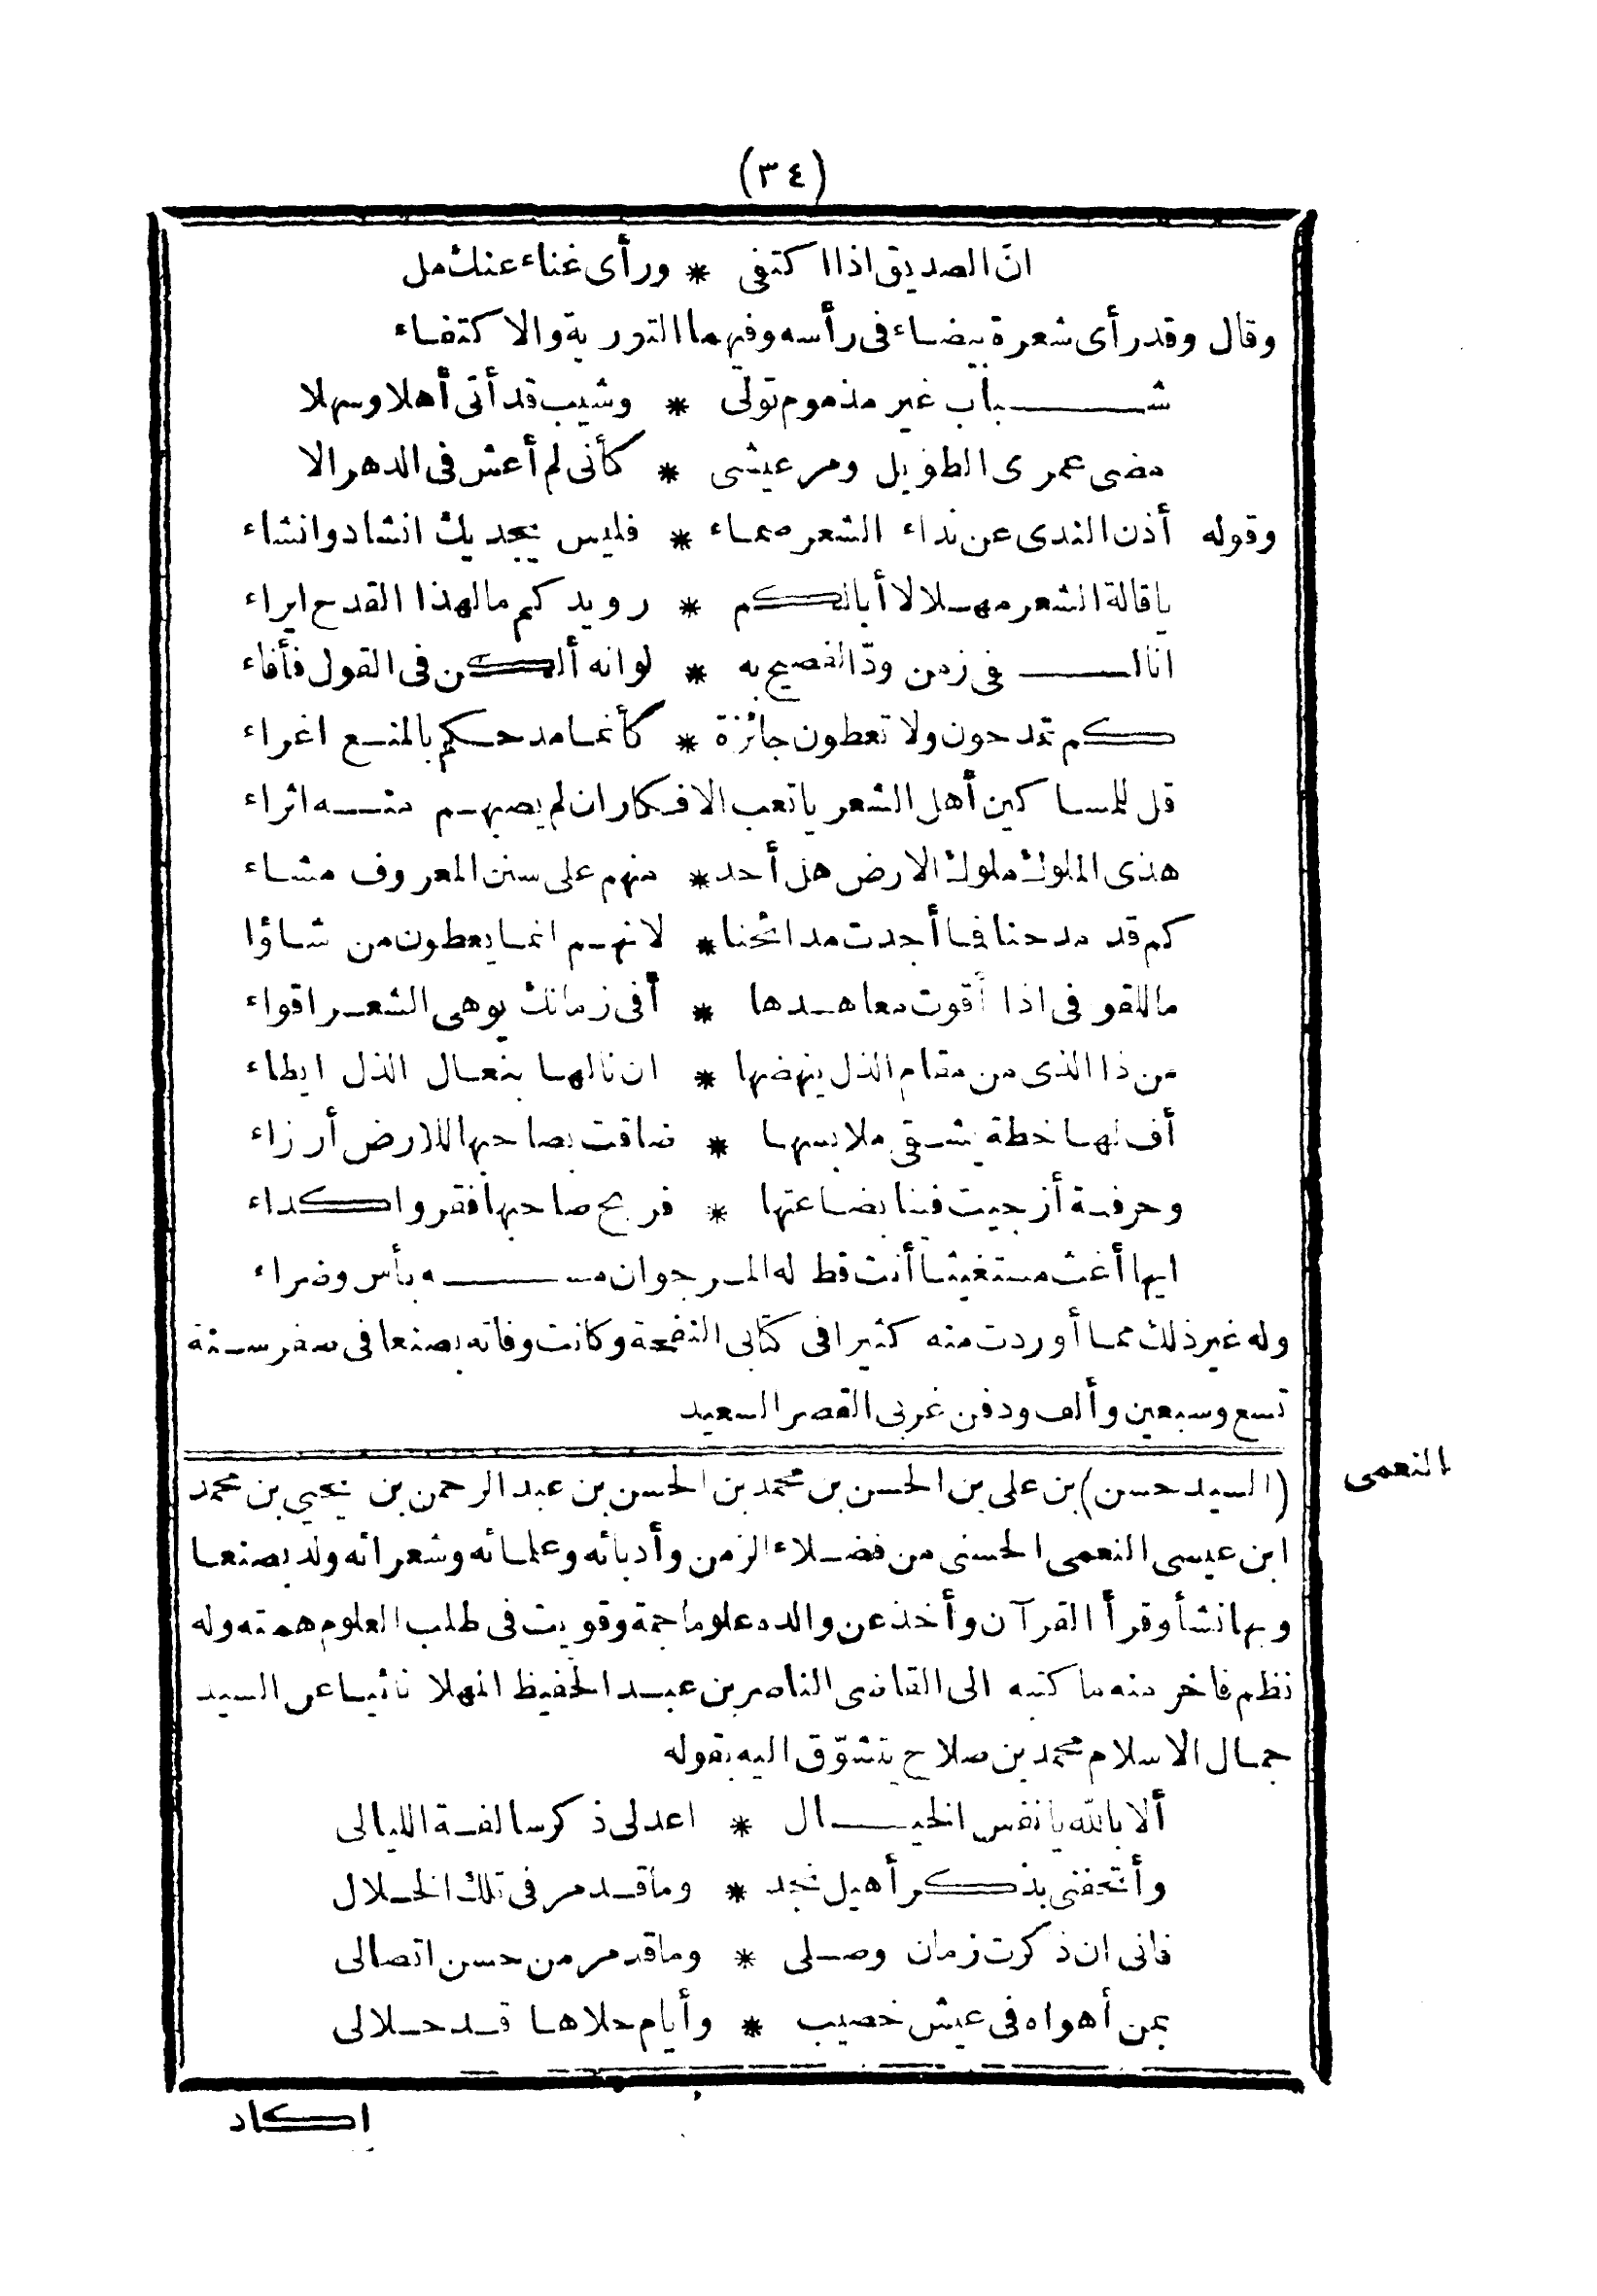 (٣٤)
انّ الصديق اذا اكتفى * ورأى غناء عنك مل
وقال وقد رأى شعرة بيضاء فى رأسه وفيهما التورية والاكتفاء
شباب غير مذموم تولى * وشيب قد أتى أهلا وسهلا
مضى عمرى الطويل ومر عيشى * كأنى لم أعش فى الدهر الا
وقوله أذن الندى عن نداء الشعر صماء * فليس يجديك انشاد وانشاء
يا قالة الشعر مهلا لا أبا لكم * رويدكم ما لهذا القدح ايراء
انا لفى زمن ودّ الفصيح به * لو انه ألكن فى القول فأفاء
كم تمدحون ولا تعطون جائزة * كأنما مدحكم بالمنع اغراء
قل للمساكين أهل الشعر يا تعب الافكار ان لم يصبهم منه اثراء
هذى الملوك ملوك الارض هل أحد * منهم على سنن المعروف مشاء
كم قد مدحنا فما أجدت مدائحنا * لانهم انما يعطون من شاؤا
ما للقوفى اذا أقوت معاهدها * أفى زمانك يوهى الشعر اقواء
من ذا الذى من مقام الذل ينهضها * ان نالها بنعال الذل ايطاء
أف لها خطة يشقى ملابسها * ضاقت بصاحبها للارض أرزاء
وحرفة أزجيت فينا بضاعتها * فربح صاحبها فقر واكداء
ايها أغث مستغيثا أنت قط له المرجو ان مسه بأس وضراء
وله غير ذلك مما أوردت منه كثيرا فى كتابى النفحة وكانت وفاته بصنعا فى صفر سنة
تسع وسبعين وألف ودفن غربى القصر السعيد
النعمى
(السيد حسن) بن على بن الحسن بن محمد بن الحسن بن عبد الرحمن بن يحيى بن محمد
ابن عيسى النعمى الحسنى من فضلاء الزمن وأدبائه وعلمائه وشعرائه ولد بصنعا
وبها نشأ وقرأ القرآن وأخذ عن والده علوما جمة وقويت فى طلب العلوم همته وله
نظم فاخر منه ما كتبه الى القاضى الناصر بن عبد الحفيظ المهلا نائبا عن السيد
جمال الاسلام محمد بن صلاح يتشوّق اليه بقوله
ألا بالله يا نفس الخيال * اعد لى ذكر سالفة الليالى
وأتحفنى بذكر أهيل نجد * وما قد مر فى تلك الخلال
فانى ان ذكرت زمان وصلى * وما قد مر من حسن اتصالى
بمن أهواه فى عيش خصيب * وأيام حلاها قد حلالى
اكاد